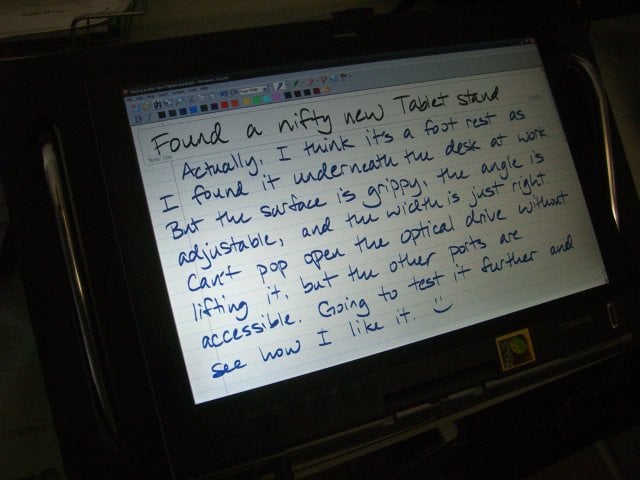 Found a nifty new Tablet stand
Note Title
Actually, I think it's a foot rest as
I found it underneath the desk at work.
But the surface is grippy, the angle is
adjustable, and the width is just right.
Can't pop open the optical drive without
lifting it, but the other ports are
accessible. Going to test it further and
see how I like it. :)